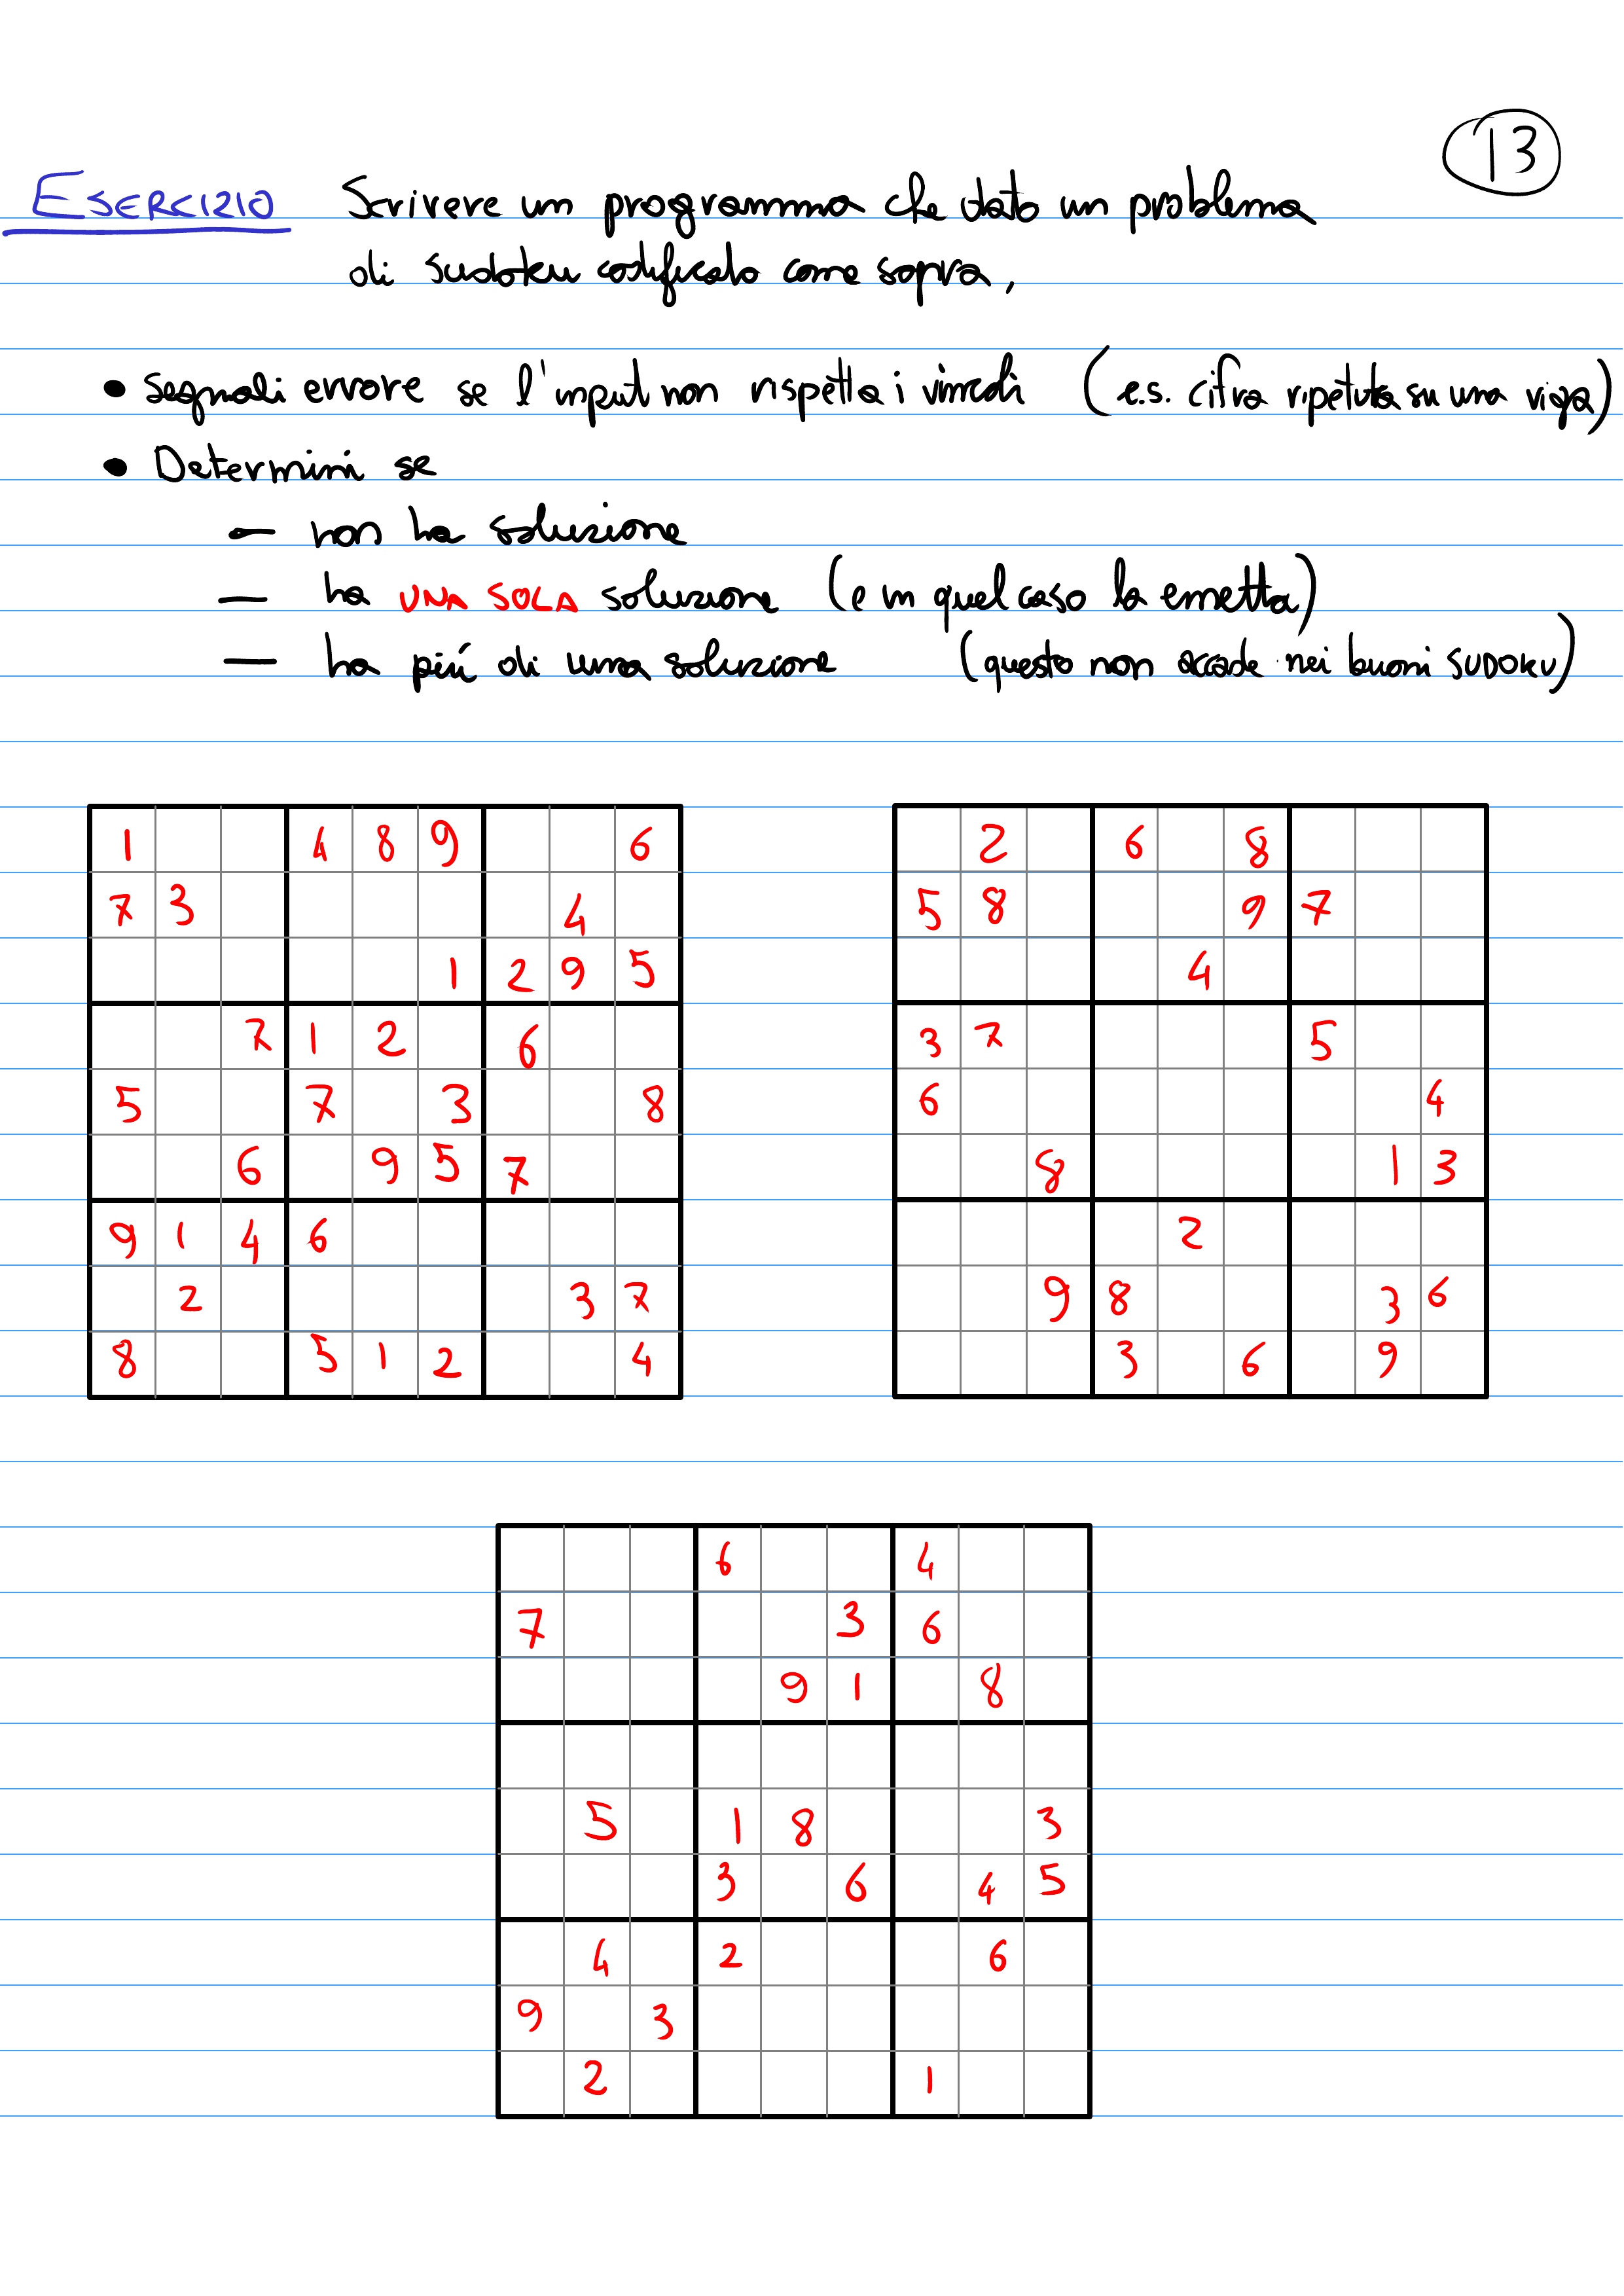 13
ESERCIZIO Scrivere un programma che dato un problema
di sudoku codificato come sopra,
• segnali errore se l'input non rispetta i vincoli (e.s. cifra ripetuta su una riga)
• Determini se
— non ha soluzione
— ha UNA SOLA soluzione (e in quel caso la emetta)
— ha piú di una soluzione (questo non accade nei buoni SUDOKU)
1 4 8 9 6
7 3 4
1 2 9 5
7 1 2 6
5 7 3 8
6 9 5 7
9 1 4 6
2 3 7
8 5 1 2 4
2 6 8
5 8 9 7
4
3 7 5
6 4
8 1 3
2
9 8 3 6
3 6 9
6 4
7 3 6
9 1 8
5 1 8 3
3 6 4 5
4 2 6
9 3
2 1